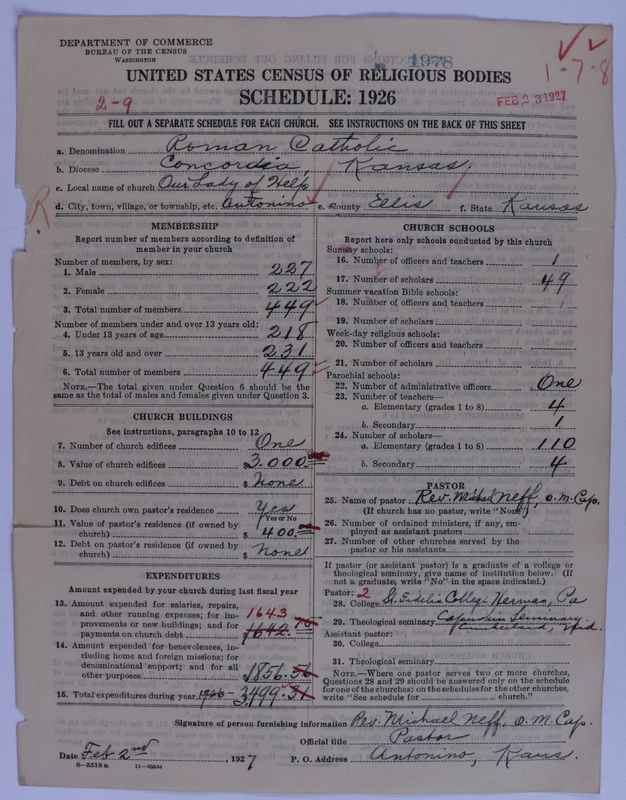 DEPARTMENT OF COMMERCE
BUREAU OF THE CENSUS
WASHINGTON
1978
1-7-8
UNITED STATES CENSUS OF RELIGIOUS BODIES
SCHEDULE: 1926
2-9
FEB 23 1927
FILL OUT A SEPARATE SCHEDULE FOR EACH CHURCH. SEE INSTRUCTIONS ON THE BACK OF THIS SHEET
a. Denomination Roman Catholic
b. Diocese Concordia Kansas
c. Local name of church Our Lady of Help
d. City, town, village, or township, etc. Antonino e. County Ellis f. State Kansas
R
MEMBERSHIP
Report number of members according to definition of
member in your church
Number of members, by sex:
1. Male 227
2. Female 222
3. Total number of members 449
Number of members under and over 13 years old:
4. Under 13 years of age 218
5. 13 years old and over 231
6. Total number of members 449
NOTE.—The total given under Question 6 should be the
same as the total of males and females given under Question 3.
CHURCH BUILDINGS
See instructions, paragraphs 10 to 12
7. Number of church edifices One
8. Value of church edifices $ 3.000.00
9. Debt on church edifices $ None
10. Does church own pastor's residence? Yes
Yes or No
11. Value of pastor's residence (if owned by
church) $ 400.00
12. Debt on pastor's residence (if owned by
church) $ None
EXPENDITURES
Amount expended by your church during last fiscal year
13. Amount expended for salaries, repairs,
and other running expenses; for im-
provements or new buildings; and for
payments on church debt 1643 $ 1642.75
14. Amount expended for benevolences, in-
cluding home and foreign missions; for
denominational support; and for all
other purposes $1856.56
15. Total expenditures during year 1926 - 3,499.31
CHURCH SCHOOLS
Report here only schools conducted by this church
Sunday schools:
16. Number of officers and teachers 1
17. Number of scholars 49
Summer vacation Bible schools:
18. Number of officers and teachers
19. Number of scholars
Week-day religious schools:
20. Number of officers and teachers
21. Number of scholars
Parochial schools:
22. Number of administrative officers One
23. Number of teachers—
a. Elementary (grades 1 to 8) 4
b. Secondary 1
24. Number of scholars—
a. Elementary (grades 1 to 8) 110
b. Secondary 4
PASTOR
25. Name of pastor Rev. Michael Neff, O.M.Cap.
(If church has no pastor, write "None")
26. Number of ordained ministers, if any, em-
ployed as assistant pastors
27. Number of other churches served by the
pastor or his assistants
If pastor (or assistant pastor) is a graduate of a college or
theological seminary, give name of institution below. (If
not a graduate, write "No" in the space indicated.)
Pastor: 2
28. College St. Fidelis College Herman, Pa
29. Theological seminary Capuchin Seminary
Cumberland, Md.
Assistant pastor:
30. College
31. Theological seminary
NOTE.—Where one pastor serves two or more churches,
Questions 28 and 29 should be answered only on the schedule
for one of the churches; on the schedules for the other churches,
write "See schedule for church."
Signature of person furnishing information Rev. Michael Neff, O.M.Cap.
Official title Pastor
Date Feb 2nd, 1927 P. O. Address Antonino, Kans.
8-5518 a